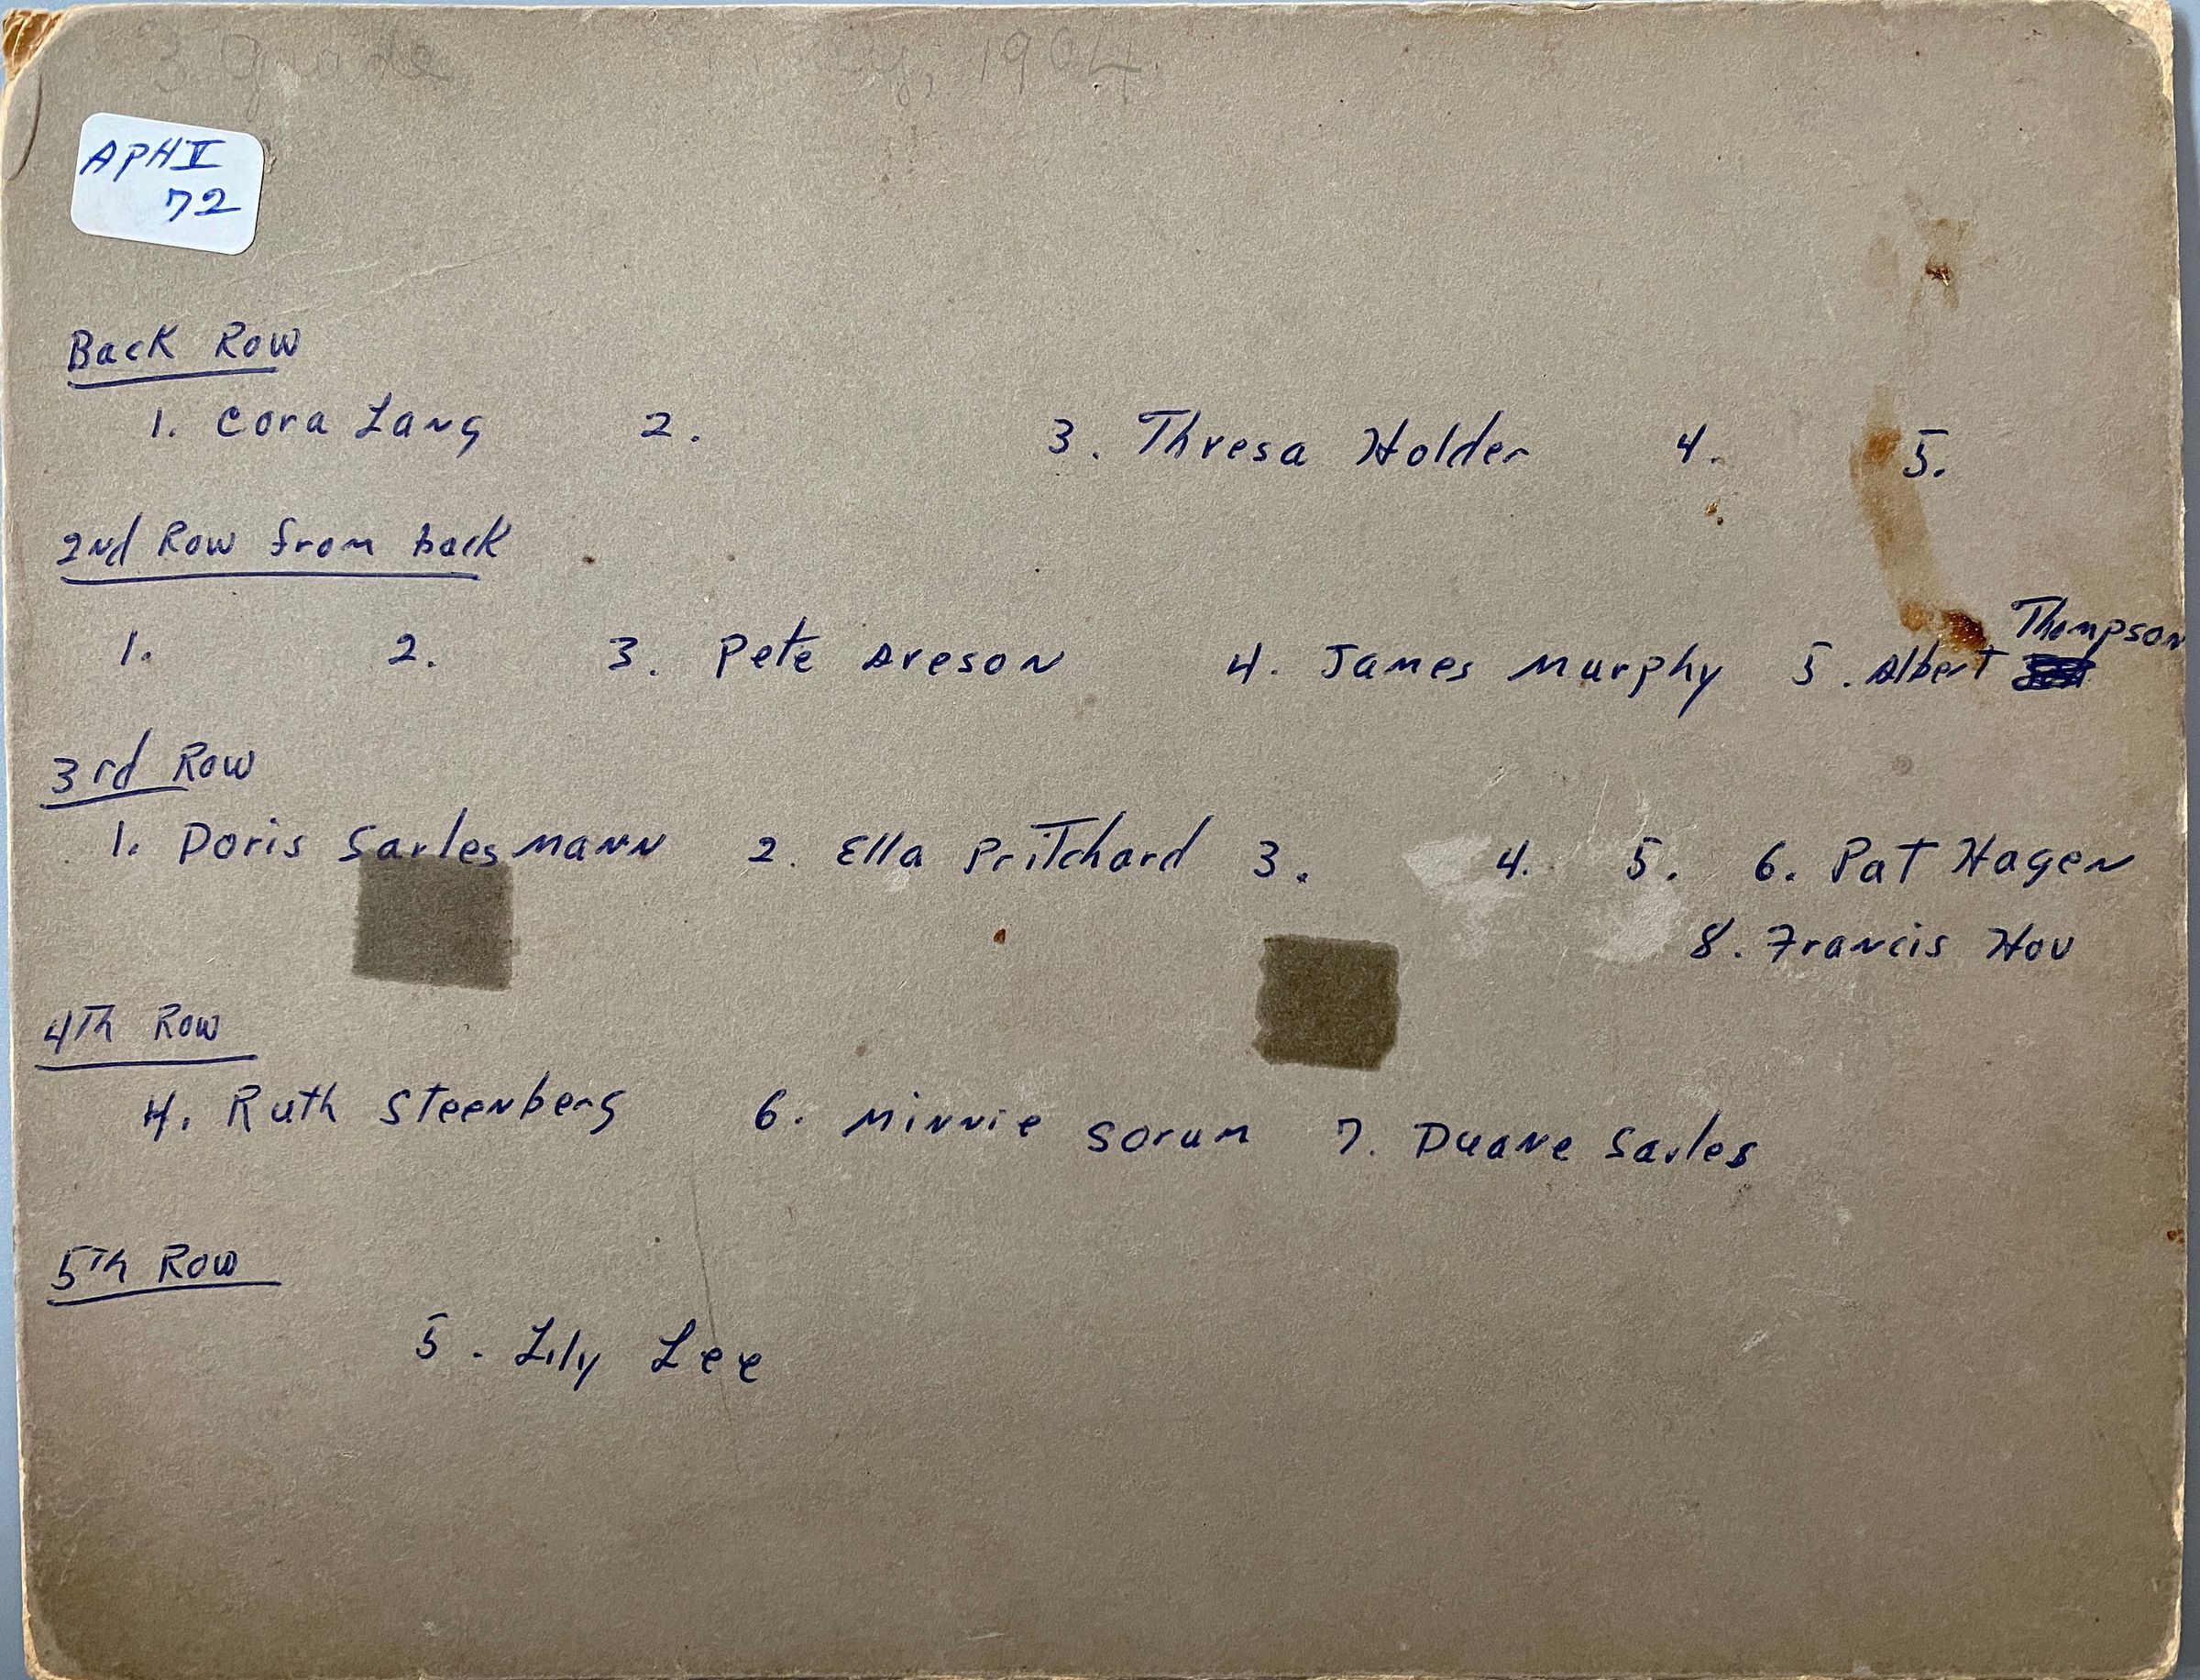 3 grade y, 1904.
APH V
72
Back Row
1. Cora Lang 2. 3. Thresa Holder 4. 5.
2nd Row from back
1. 2. 3. Pete Areson 4. James Murphy 5. Albert Thompson
3rd Row
1. Doris Sarles Mann 2. Ella Pritchard 3. 4. 5. 6. Pat Hagen
8. Francis Hov
4Th Row
4. Ruth Steenberg 6. Minnie Sorum 7. Duane Sarles
5Th Row
5. Lily Lee